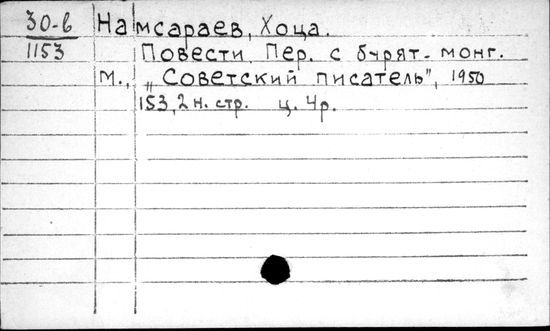 30-в Намсараев, Хоца.
1153 Повести. Пер. с бурят-монг.
М., „Советский писатель", 1950
153, 2 н. стр. ц. 4р.